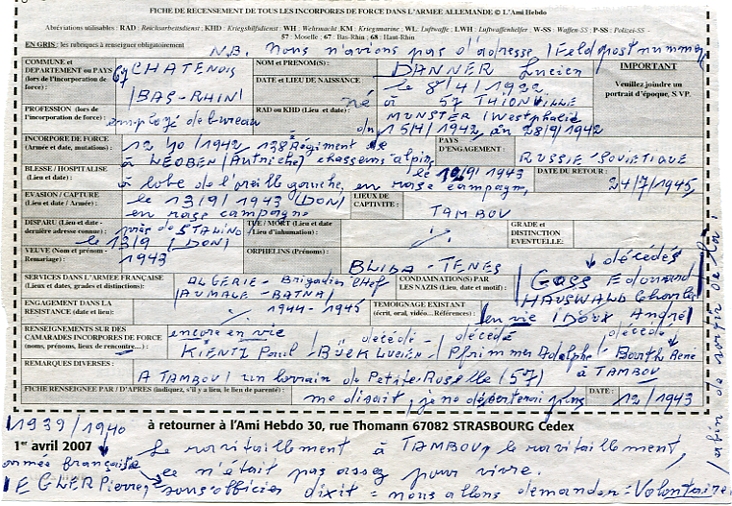 FICHE DE RECENSEMENT DE TOUS LES INCORPORES DE FORCE DANS L'ARMEE ALLEMANDE © L'Ami Hebdo
Abréviations utilisables : RAD : Reichsarbeitsdienst ; KHD : Kriegshilfsdienst ; WH : Wehrmacht ; KM : Kriegmarine ; WL : Luftwaffe ; LWH : Luftwaffenhelfer ; W-SS : Waffen-SS ; P-SS : Polizei-SS -
57 : Moselle ; 67 : Bas-Rhin ; 68 : Haut-Rhin
EN GRIS : les rubriques à renseigner obligatoirement
N.B. Nous n'avions pas d'adresse (Feldpostnummer
COMMUNE et DEPARTEMENT ou PAYS (lors de l'incorporation de force) : 67 CHATENOIS (BAS-RHIN)
NOM et PRENOM(S) : DANNER Lucien
DATE et LIEU DE NAISSANCE : né le 8/4/1922 à 57 THIONVILLE
IMPORTANT
Veuillez joindre un portrait d'époque, S.V.P.
PROFESSION (lors de l'incorporation de force) : employé de bureau
RAD ou KHD (Lieu et date) : MUNSTER (Westphalie du 15/4/1942, au 28/9/1942
INCORPORE DE FORCE (Armée et date, mutations) : 12/10/1942 138 Régiment de chasseurs alpin à LEOBEN (Autriche)
PAYS D'ENGAGEMENT : RUSSIE-SOVIETIQUE
BLESSE / HOSPITALISE (Lieu et date) : à lobe de l'oreille gauche, en rase campagne, le 10/9/1943
DATE DU RETOUR : 24/7/1945,
EVASION / CAPTURE (Lieu et date / Armée) : le 13/9/1943 (DON) en rase campagne
LIEUX DE CAPTIVITE : TAMBOV
DISPARU (Lieu et date - dernière adresse connue) : près de STALINO le 13/9 (DON) 1943
TUE / MORT (Lieu et date - Lieu d'inhumation) :
GRADE et DISTINCTION EVENTUELLE :
VEUVE (Nom et prénom - Remariage) :
ORPHELINS (Prénoms) :
SERVICES DANS L'ARMEE FRANÇAISE (Lieu et dates, grades et distinctions) : BLIDA-TENES ALGERIE - Brigadier chef (AUMALE-BATNA) 1944-1945
CONDAMNATION(S) PAR LES NAZIS (Lieu, date et motif) :
décédés
GASS Edouard
HAUSWALD Charles
ENGAGEMENT DANS LA RESISTANCE (date et lieu) :
TEMOIGNAGE EXISTANT (écrit, oral, vidéo... Références) :
en vie (DOUX André)
RENSEIGNEMENTS SUR DES CAMARADES INCORPORES DE FORCE (noms, prénoms, lieux de rencontre...) :
encore en vie décédé décédé décédé
KIENTZ Paul - BŸEK Lucien - Pfrimmer Adolphe - Barthe René à TAMBOV
REMARQUES DIVERSES : A TAMBOV (un lorrain de Petite-Rosselle (57) me disait, je ne désertrai plus
FICHE RENSEIGNEE PAR / D'APRES (indiquez, s'il y a lieu, le lien de parenté) :
DATE : 12/1943
à retourner à l'Ami Hebdo 30, rue Thomann 67082 STRASBOURG Cedex
1er avril 2007
1939/1940
armée française
Le ravitaillement à TAMBOV, le ravitaillement,
ce n'était pas assez pour vivre.
EGLER Pierre, sous officier dixit = nous allons demander = Volontaire
afin de sortir de là.